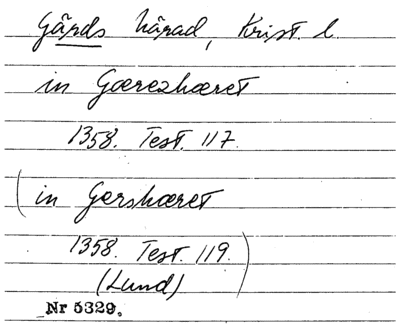 Gärds härad, Krist. l.
in Gærezhæret
1358. Test. 117.
(in Gershæret
1358. Test. 119.)
(Lund)
Nr 5329.